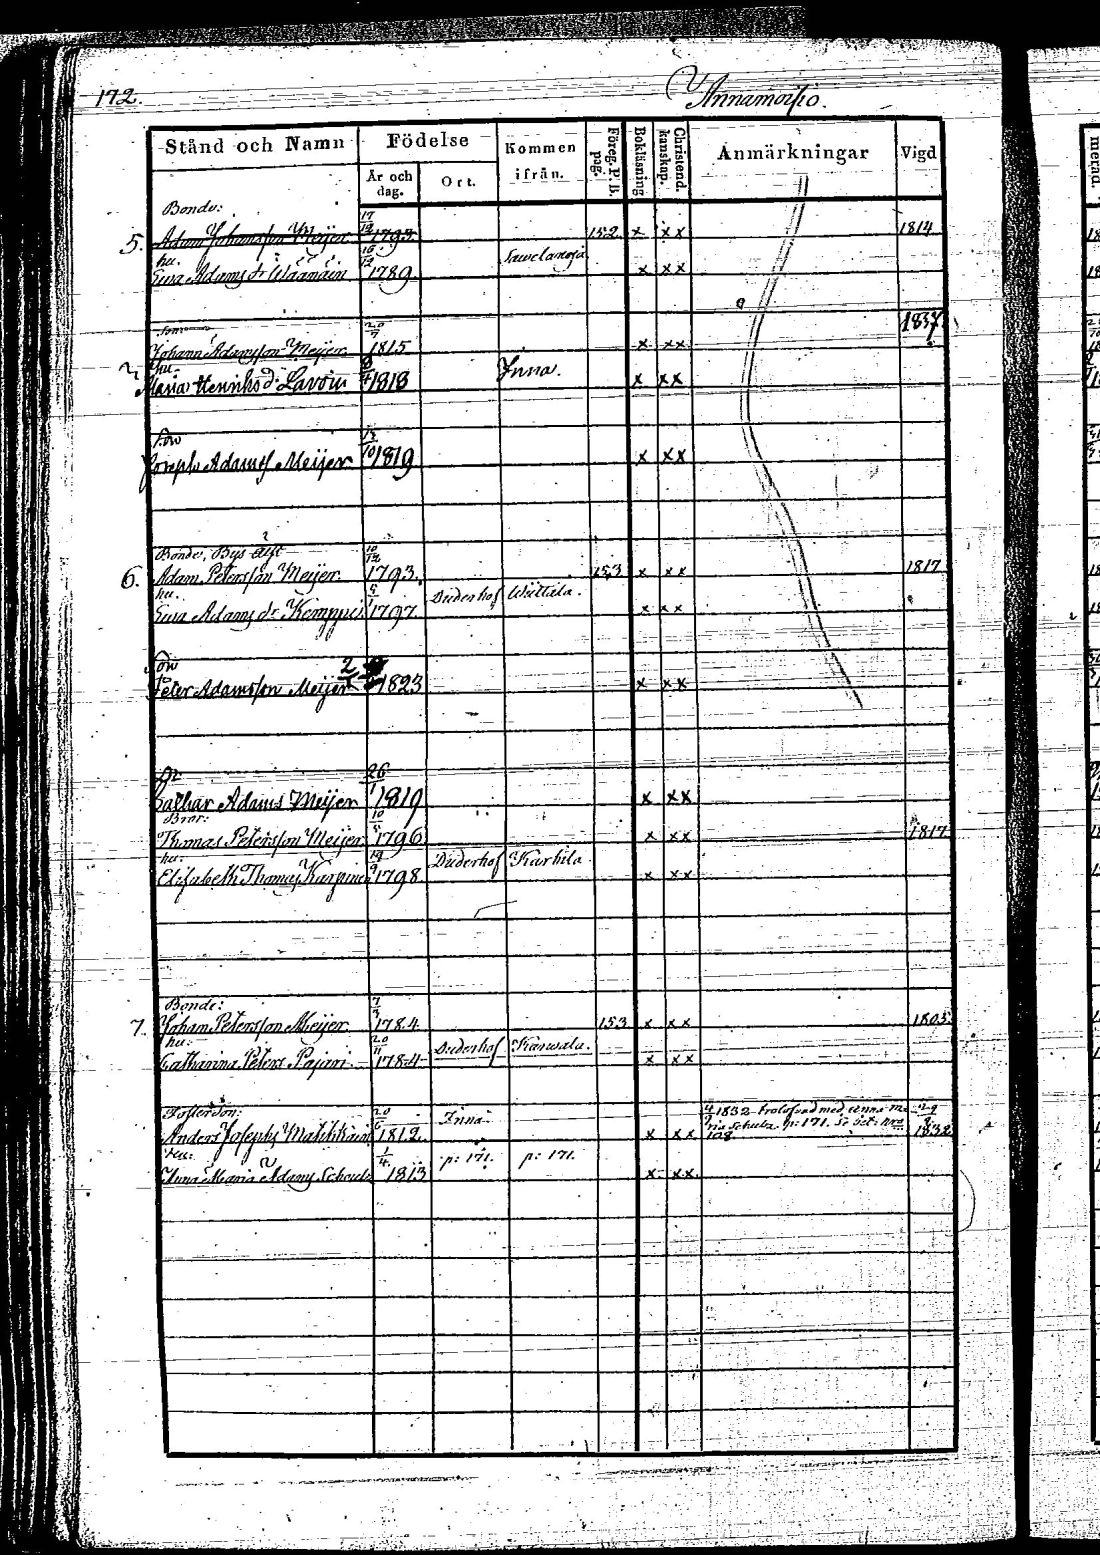 172.
Annamoisio.
Stånd och Namn Födelse Kommen ifrån. Föreg. P. B. pag. Bokläsning Christend. kunskap. Anmärkningar Vigd
År och dag. Ort.
Bonde:
5. Adam Johansson Meijer 17/12 1793. 152 x xx 1814
hu.
Eva Adams dr Wäänäin 16/12 1789 Sawelanoja x xx
Son
Johann Adamsson Meijer 20/7 1815 x xx 1837.
hu.
Maria Henriks d. Lavoin 8/4 1818 Inna. x xx
Son
Joseph Adamss Meijer 13/10 1819 x xx
Bonde, Bys
6. Adam Petersson Meijer. 10/12 1793. 153 x xx 1817
hu.
Eva Adams dr Kemppi 5/1 1797. Duderhof Wiittala. x xx
Son
Peter Adamsson Meijer 2 1823 x xx
Dr
Cathar Adams Meijer 26/1 1819 x xx
Bror:
Thomas Petersson Meijer 10/5 1796 x xx 1817
hu:
Elisabeth Thomas Karpinen 19/9 1798 Duderhof Karhila x xx
Bonde:
7. Johan Petersson Meijer 7/3 1784. 153 x xx 1805
hu:
Catharina Peters Pajari 20/11 1784 Duderhof Karwala. x xx
Fosterson: 4/9 1832 trolofvad med Anna Ma-
Anders Josephs Malikkain 20/6 1812. Inna ria Schulz p: 171. x xx 108 1832
Hu:
Anna Maria Adams Schultz 1/4. 1813 p: 171. p: 171. x xx